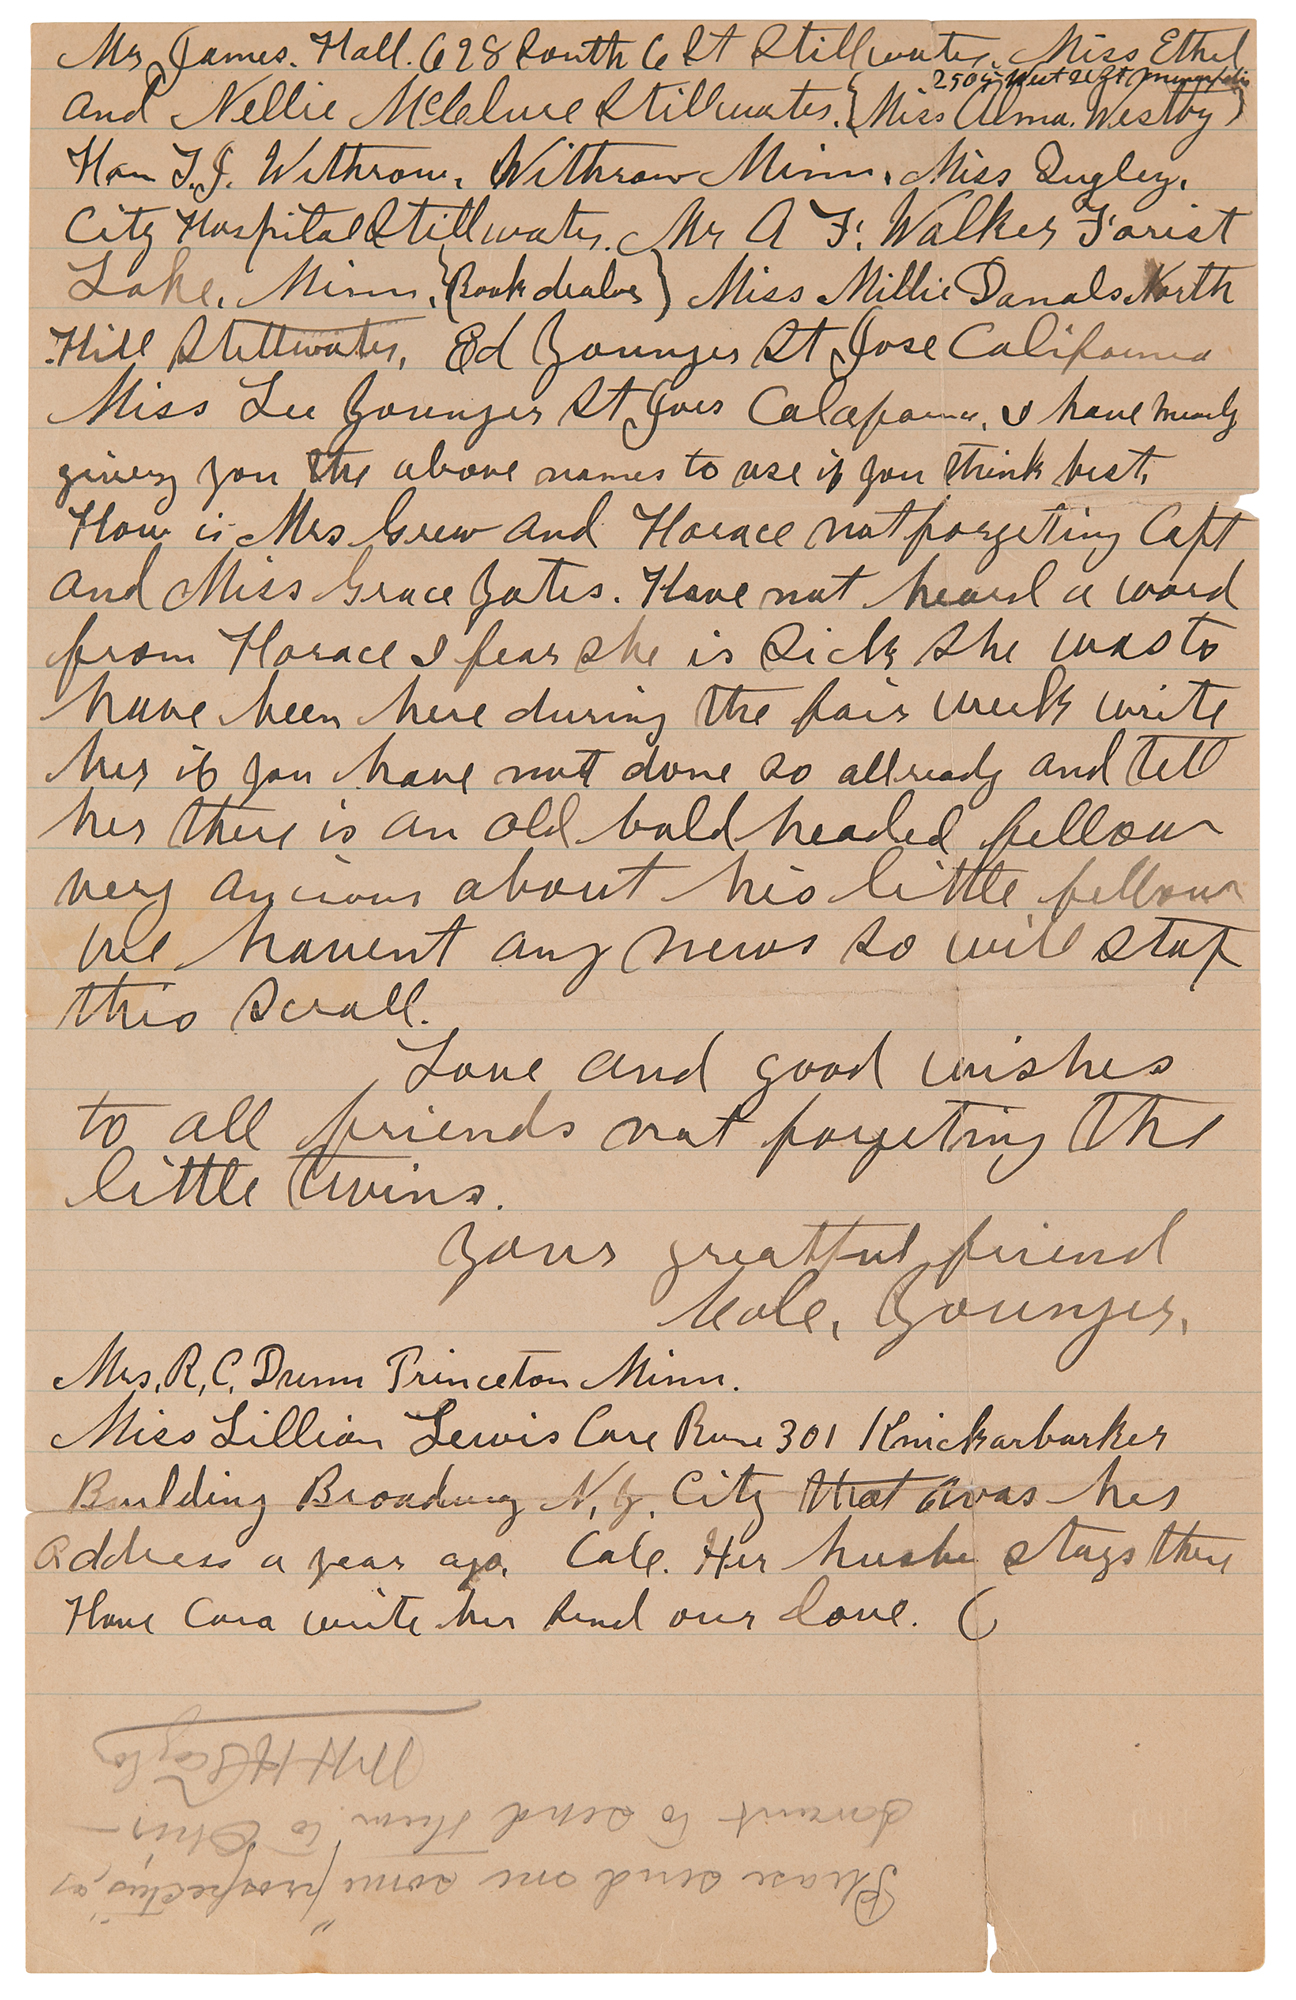 Mr James. Hall. 628 South 6 St Stillwater. Miss Ethel
2505 West 21 St,
and Nellie McClure Stillwater. {Miss Alma. Westby}
Hon T. J. Withrow, Withrow Minn, Miss Qugley,
City Hospital Stillwater. Mr A F. Walker Forist
Lake, Minn, {Book dealer} Miss Millie Danals North
Hill Stillwater, Ed Younger St Jose California
Miss Lee Younger St Joes Calafornia, I have mearly
giveng you the above names to use if you think best,
How is Mrs Grew and Horace not forgeting Capt
and Miss Grace Yates. Have not heard a word
from Horace I fear she is sick she was to
have been here during the fair week write
her if you have not done so allready and tell
her there is an old bald headed fellow
very ancious about his little fellow
we havent any news so will stop
this scrall.
Love and good wishes
to all friends not forgeting the
little twins.
Your greatful friend
Cole, Younger,
Mrs, R, C, Dunn Princeton Minn.
Miss Lillian Lewis Care Rume 301 Knickarbarker
Building Broadway N, Y, City that was her
Address a year ago, Cole. Her husbn stays there
Have Cora write her send our love. (
Please send me some "prospectus", as
I want to send them to Ohio—
M H H Taylor